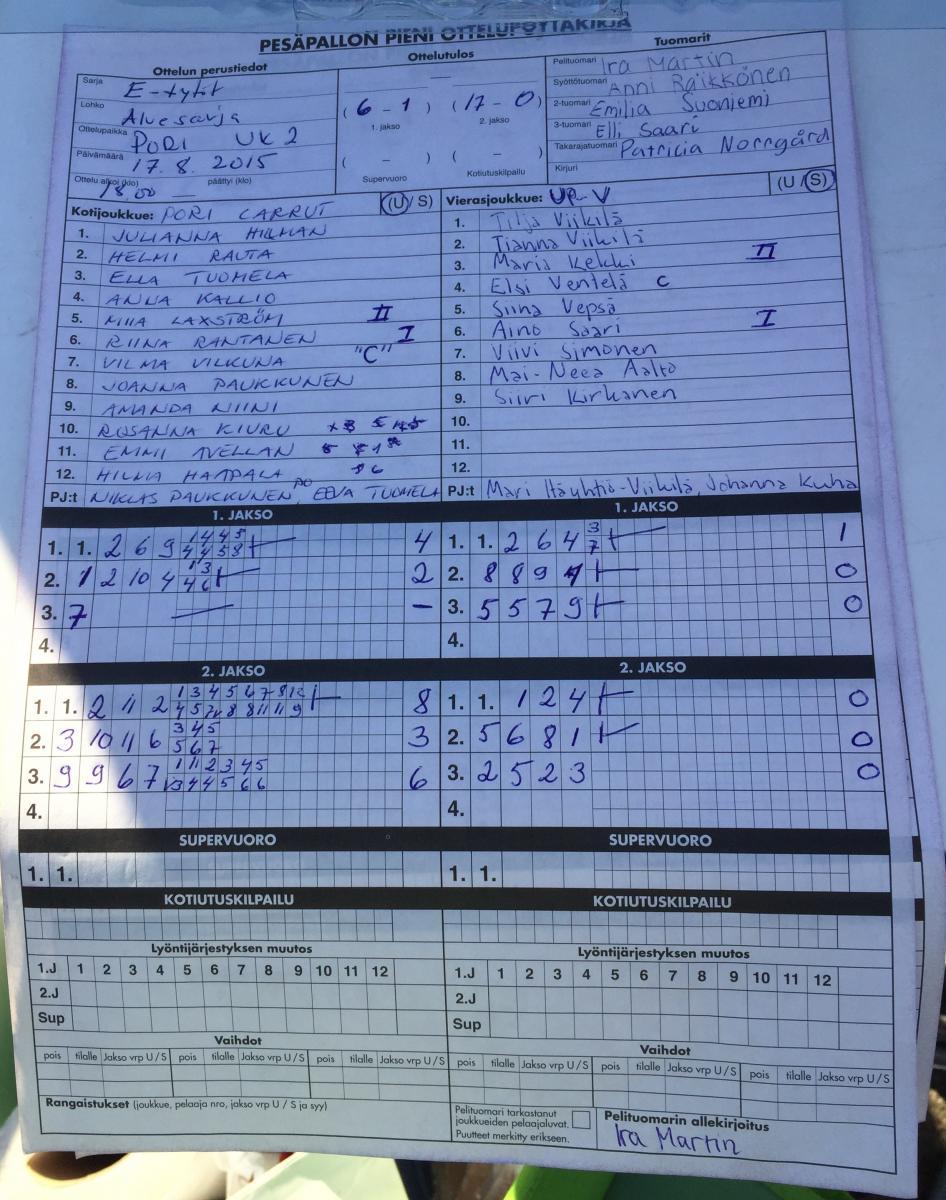 PESÄPALLON PIENI OTTELUPÖYTÄKIRJA
Ottelun perustiedot
Sarja E-tytöt
Lohko Aluesarja
Ottelupaikka PORI UK 2
Päivämäärä 17.8. 2015
Ottelu alkoi (klo) 18.00 päättyi (klo) —
Ottelutulos
( 6 - 1 ) ( 17 - 0 )
1. jakso 2. jakso
( - ) ( - )
Supervuoro Kotiutuskilpailu
Tuomarit
Pelituomari Ira Martin
Syöttötuomari Anni Räikkönen
2-tuomari Emilia Suoniemi
3-tuomari Elli Saari
Takarajatuomari Patricia Norrgård
Kirjuri
Kotijoukkue: PORI CARRUT (U / S)
1. JULIANNA HILMAN
2. HELMI RAUTA
3. ELLA TUOMELA
4. ANNA KALLIO
5. MIIA LAXSTRÖM II
6. RIINA RANTANEN I
7. VILMA VILKUNA "C"
8. JOANNA PAUKKUNEN
9. AMANDA NIINI
10. ROSANNA KIURU
11. EMMI AVELLAN
12. HILMA HAAPALA
PJ:t NIKLAS PAUKKUNEN, EEVA TUOMELA
Vierasjoukkue: UP-V (U / S)
1. Tilja Viikilä
2. Tianna Viikilä
3. Maria Kekki II
4. Elsi Ventelä C
5. Siina Vepsä
6. Aino Saari I
7. Viivi Simonen
8. Mai-Neea Aalto
9. Siiri Kirkanen
10.
11.
12.
PJ:t Mari Häyhtiö-Viikilä, Johanna Kuha
1. JAKSO
1. 1. 2 6 9 4
2. 1 2 10 4 2
3. 7 —
4.
1. JAKSO
1. 1. 2 6 4 3 7 1
2. 8 8 9 0
3. 5 5 7 9 0
4.
2. JAKSO
1. 1. 2 11 2 8
2. 3 10 11 6 3 4 5 3
5 6 7
3. 9 9 6 7 6
4.
2. JAKSO
1. 1. 1 2 4 0
2. 5 6 8 1 0
3. 2 5 2 3 0
4.
SUPERVUORO
1. 1.
SUPERVUORO
1. 1.
KOTIUTUSKILPAILU
KOTIUTUSKILPAILU
Lyöntijärjestyksen muutos
1.J 1 2 3 4 5 6 7 8 9 10 11 12
2.J
Sup
Lyöntijärjestyksen muutos
1.J 1 2 3 4 5 6 7 8 9 10 11 12
2.J
Sup
Vaihdot
pois tilalle Jakso vrp U / S pois tilalle Jakso vrp U / S pois tilalle Jakso vrp U / S
Vaihdot
pois tilalle Jakso vrp U / S pois tilalle Jakso vrp U / S pois tilalle Jakso vrp U / S
Rangaistukset (joukkue, pelaaja nro, jakso vrp U / S ja syy)
Pelituomari tarkastanut
joukkueiden pelaajaluvat.
Puutteet merkitty erikseen.
Pelituomarin allekirjoitus
Ira Martin